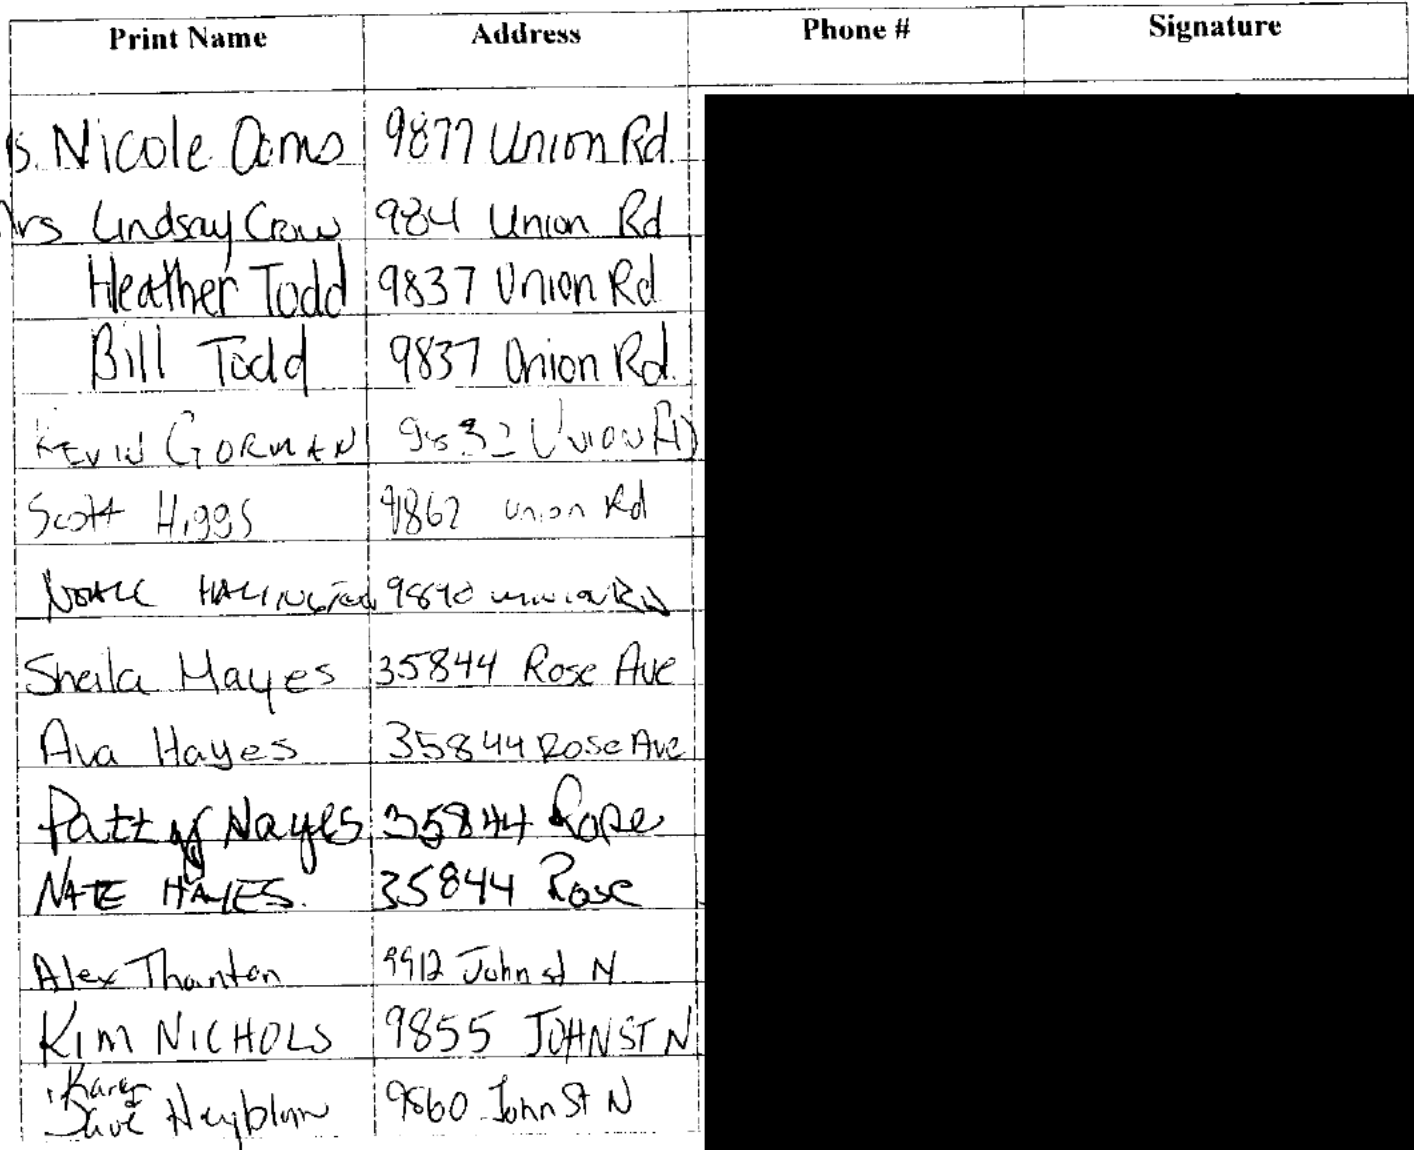 Print Name Address Phone # Signature
s. Nicole 9877 Union Rd.
Mrs Lindsay Crow 984 Union Rd
Heather Todd 9837 Union Rd
Bill Todd 9837 Union Rd.
KEVIN GORMAN 9832 UNION RD
Scott Higgs 9862 Union Rd
9840 Union Rd
Sheila Hayes 35844 Rose Ave
Ava Hayes 35844 Rose Ave
Patty Hayes 35844 Rose
NATE HAYES. 35844 Rose
Alex 9912 John st N
KIM NICHOLS 9855 JOHN ST N
Dave 9860 John St N